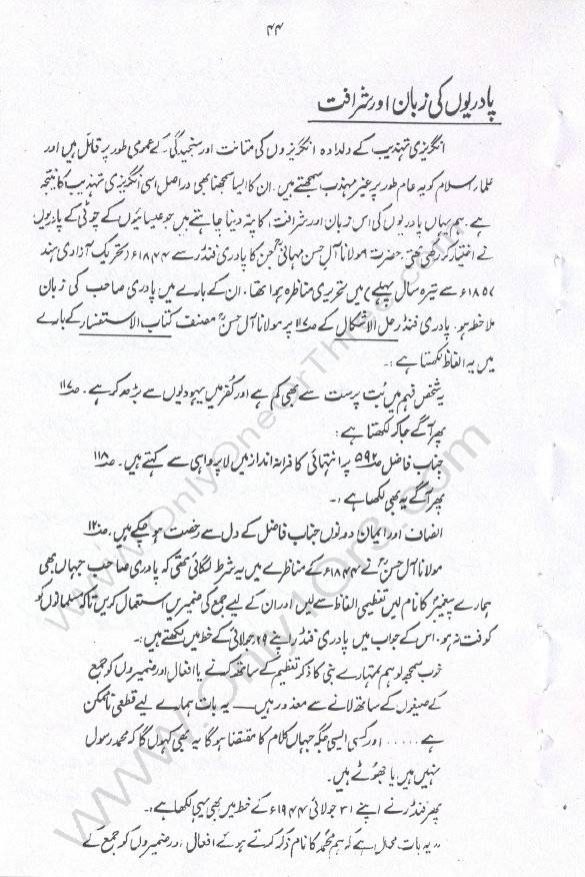 ۴۴
پادریوں کی زبان اور شرافت
انگریزی تہذیب کے دلدادہ انگریزوں کی متانت اور سنجیدگی کے عمومی طور پر قائل ہیں اور
علماء اسلام کو یہ عام طور پر غیر مہذب سمجھتے ہیں۔ ان کا ایسا سمجھنا بھی دراصل اسی انگریزی تہذیب کا نتیجہ
ہے۔ ہم یہاں پادریوں کی اس زبان اور شرافت کا پتہ دینا چاہتے ہیں جو عیسائیوں کے چوٹی کے پادریوں
نے اختیار کر رکھی تھی۔ حضرت مولانا آل حسن مہانیؒ جن کا پادری فنڈر سے ۱۸۴۴ء (تحریک آزادی ہند
۱۸۵۷ء سے تیرہ سال پہلے) میں تحریری مناظرہ ہوا تھا۔ ان کے بارے میں پادری صاحب کی زبان
ملاحظہ ہو۔ پادری فنڈر حل الاشکال کے صـ۱۱۷ پر مولانا آل حسنؒ مصنف کتاب الاستفسار کے بارے
میں یہ الفاظ لکھتا ہے:۔
یہ شخص فہم میں بُت پرست سے بھی کم ہے اور کفر میں یہودیوں سے بڑھ کر ہے۔ صـ۱۱۷
پھر آگے جا کر لکھتا ہے:
جناب فاضل صـ۵۹۲ پر انتہائی کافرانہ انداز میں لاپرواہی سے کہتے ہیں۔ صـ۱۱۸
پھر آگے یہ بھی لکھا ہے:۔
انصاف اور ایمان دونوں جناب فاضل کے دل سے رخصت ہو چکے ہیں۔ صـ۱۲۰
مولانا آل حسنؒ نے ۱۸۴۴ء کے مناظرے میں یہ شرط لگائی تھی کہ پادری صاحب جہاں بھی
ہمارے پیغمبرؐ کا نام لیں تعظیمی الفاظ سے لیں اور ان کے لیے جمع کی ضمیریں استعمال کریں تاکہ مسلمانوں کو
کوفت نہ ہو۔ اس کے جواب میں پادری فنڈر اپنے ۲۹ جولائی کے خط میں لکھتے ہیں:۔
خوب سمجھ لو ہم تمہارے نبی کا ذکر تعظیم کے ساتھ کرنے یا افعال اور ضمیروں کو جمع
کے صیغوں کے ساتھ لانے سے معذور ہیں—— یہ بات ہمارے لیے قطعی ناممکن
ہے ..... اور کسی ایسی جگہ جہاں کلام کا مقتضا ہو گا یہ بھی کہوں گا کہ محمد رسول
نہیں ہیں یا جھوٹے ہیں۔
پھر فنڈر نے اپنے ۳۱ جولائی ۱۹۴۴ء کے خط میں بھی یہی لکھا ہے:۔
,, یہ بات محال ہے کہ ہم محمدؐ کا نام ذکر کرتے ہوئے افعال اور ضمیروں کو جمع کے
www.OnlyOneOrThree.com
www.Only1Or3.com